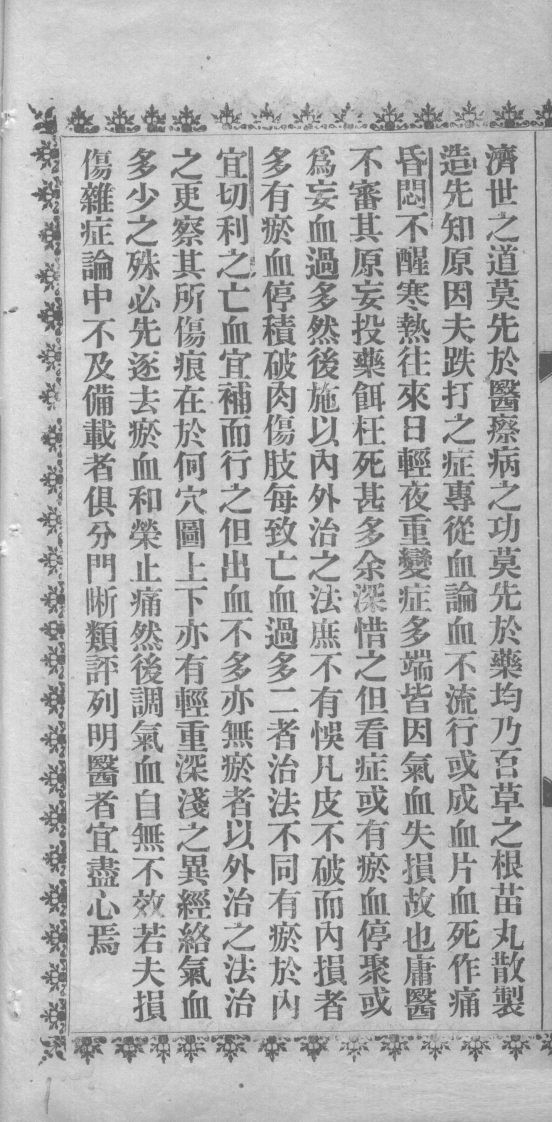 濟世之道莫先於醫療病之功莫先於藥均乃百草之根苗丸散製
造先知原因夫跌打之症專從血論血不流行或成血片血死作痛
昏悶不醒寒熱往來日輕夜重變症多端皆因氣血失損故也庸醫
不審其原妄投藥餌枉死甚多余深惜之但看症或有瘀血停聚或
爲妄血過多然後施以內外治之法庶不有悞凡皮不破而內損者
多有瘀血停積破肉傷肢每致亡血過多二者治法不同有瘀於內
宜切利之亡血宜補而行之但出血不多亦無瘀者以外治之法治
之更察其所傷痕在於何穴圖上下亦有輕重深淺之異經絡氣血
多少之殊必先逐去瘀血和榮止痛然後調氣血自無不效若夫損
傷雜症論中不及備載者俱分門晰類評列明醫者宜盡心焉